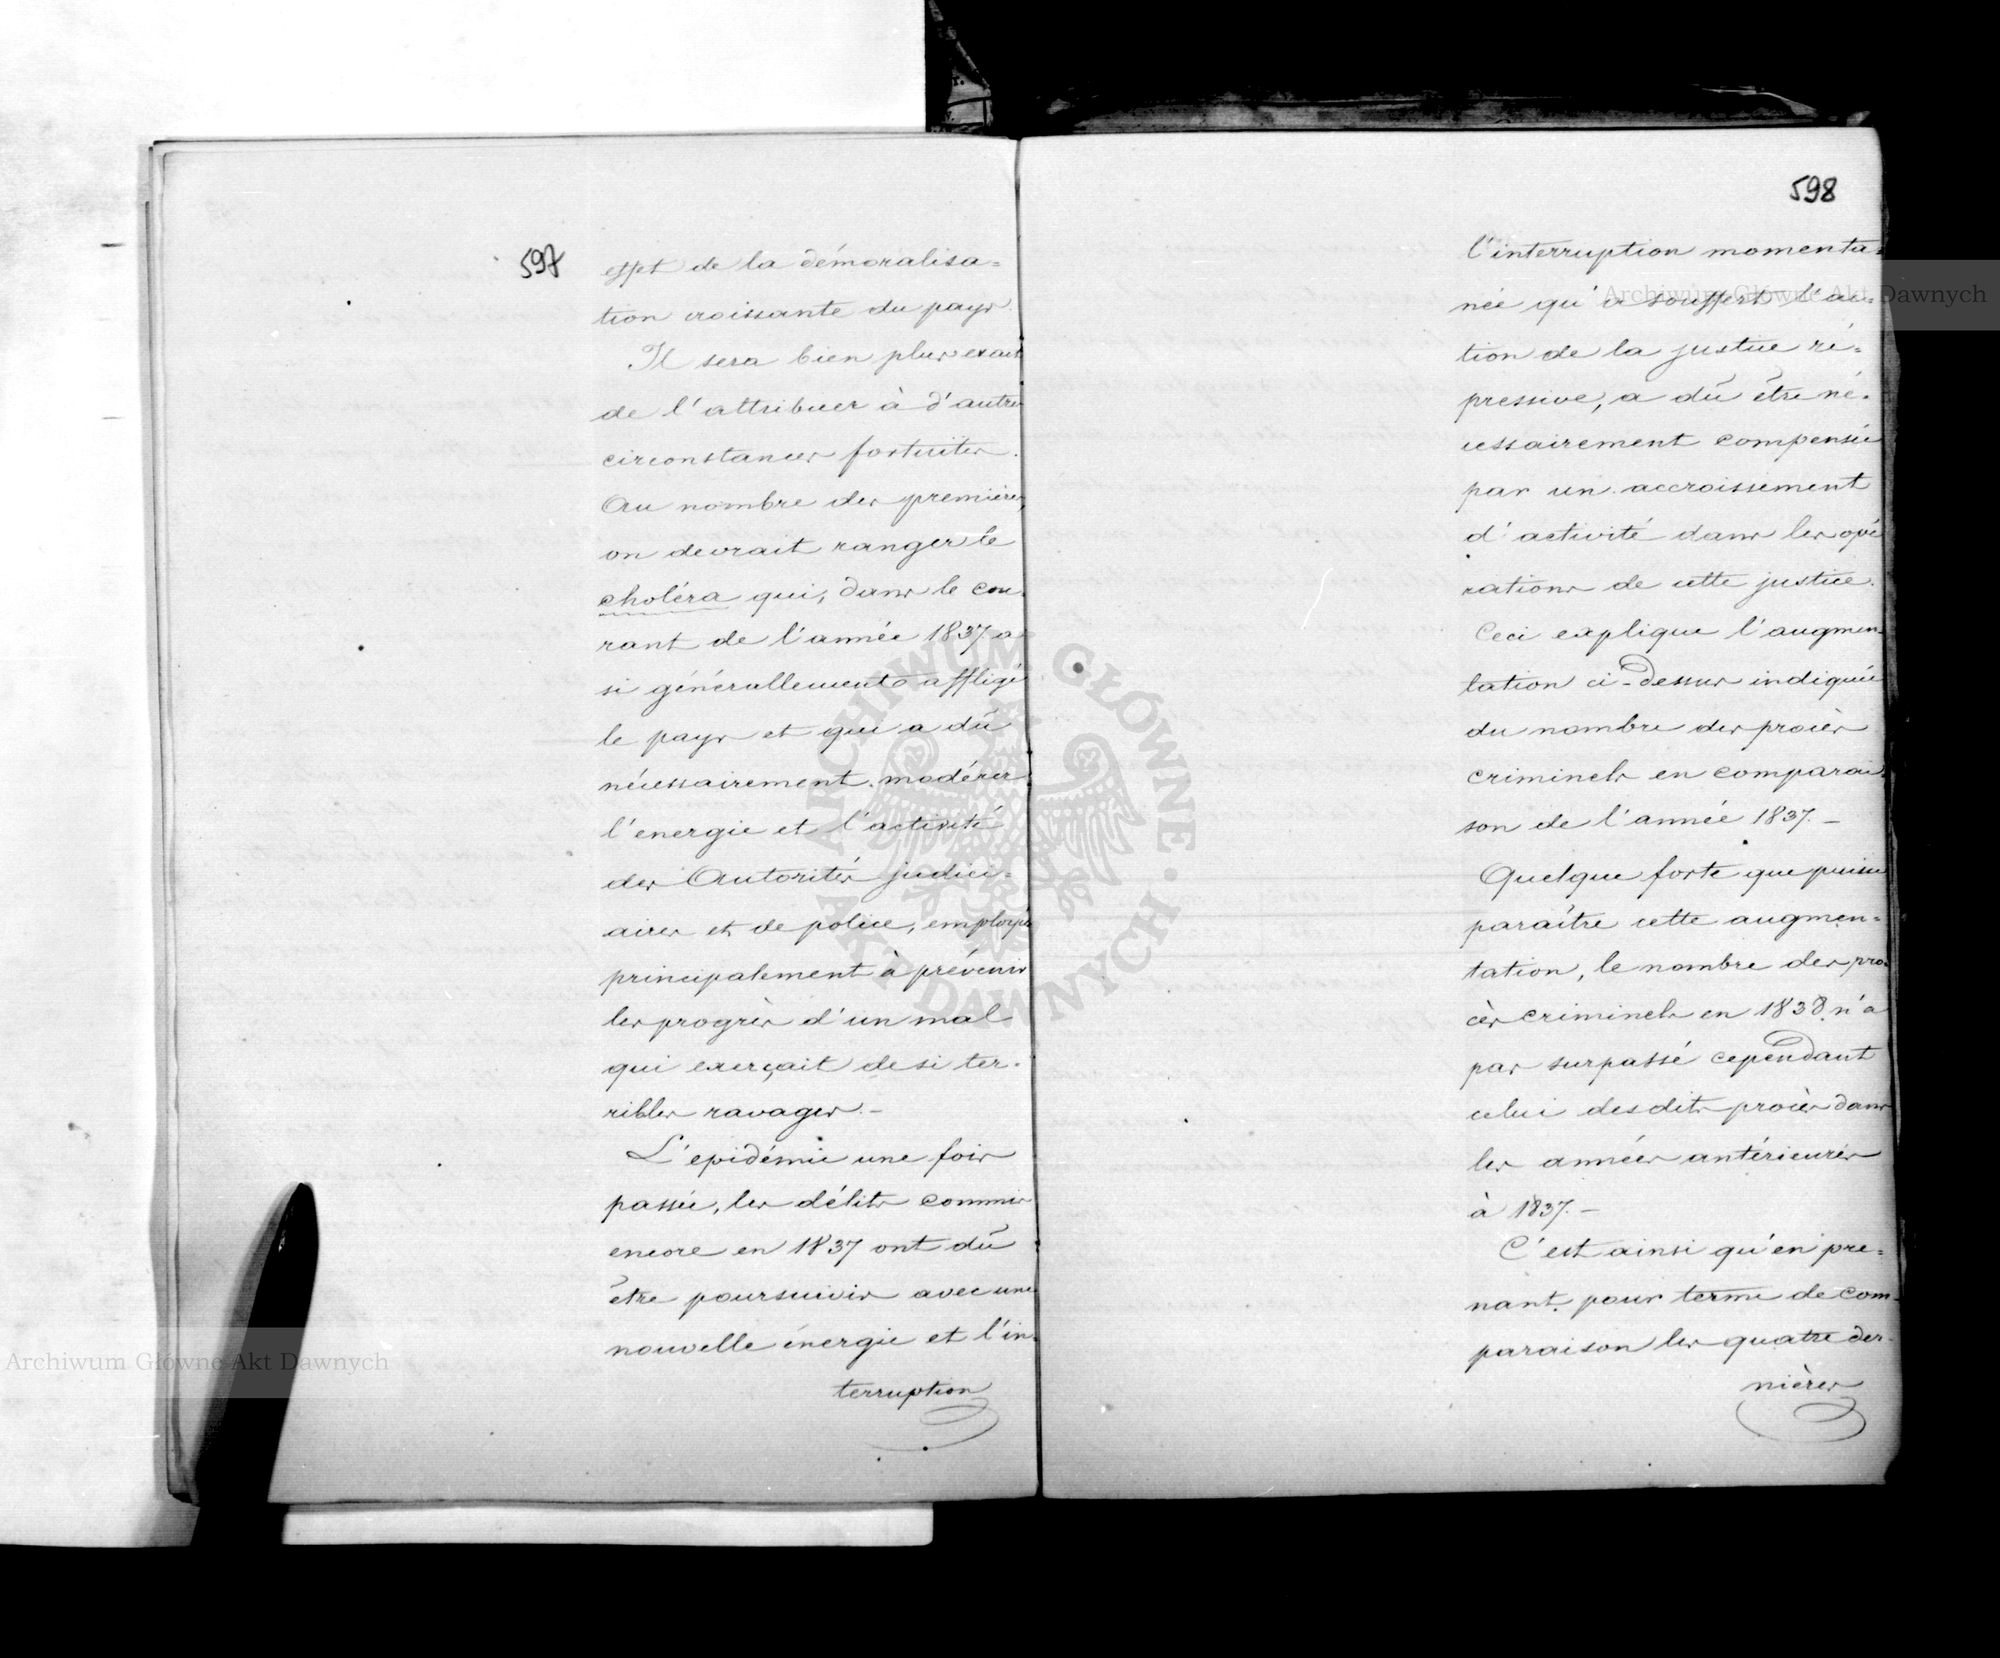 597
effet de la démoralisa=
tion croissante du pays.
Il sera bien plus exact
de l'attribuer à d'autres
circonstances fortuites.
Au nombre des premières,
on devrait ranger le
choléra qui, dans le cou
rant de l'année 1837. a
si générallement affligé
le pays et qui a dû
nécessairement modérer
l'energie et l'activité
des Autorités judici=
aires et de police, employés
principalement à prévenir
les progrès d'un mal
qui exerçait de si ter-
ribles ravages.-
L'epidémie une fois
passée, les délits commis
encore en 1837 ont dû
être poursuivis avec une
nouvelle énergie et l'in-
terruption
598
l'interruption momenta=
née qu'a souffert l'ac=
tion de la justice ré=
pressive, a dû être né-
cessairement compensée
par un accroissement
d'activité dans les opé
rations de cette justice.
Ceci explique l'augmen-
tation ci-dessus indiquée
du nombre des procès
criminels en comparai
son de l'année 1837.-
Quelque forte que puisse
paraître cette augmen=
tation, le nombre des pro-
cès criminels en 1838 n'a
pas surpassé cependant
celui desdits procès dans
les années antérieures
à 1837.-
C'est ainsi qu'en pre=
nant pour terme de com-
paraison les quatre der-
nières
Archiwum Główne Akt Dawnych
Archiwum Główne Akt Dawnych
ARCHIWUM GŁÓWNE AKT DAWNYCH